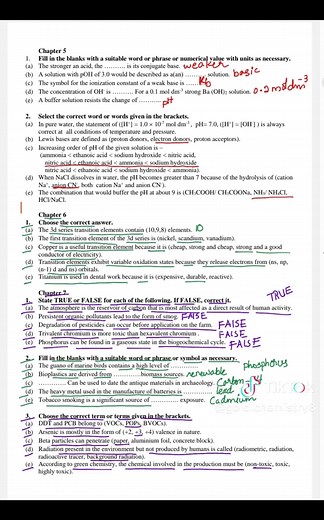 Chapter 5
1. Fill in the blanks with a suitable word or phrase or numerical value with units as necessary.
(a) The stronger an acid, the ............ is its conjugate base. weaker
(b) A solution with pOH of 3.0 would be described as a(an) ............ solution. basic
(c) The symbol for the ionization constant of a weak base is ...... Kb
(d) The concentration of OH⁻ is ............ For a 0.1 mol dm⁻³ strong Ba (OH)₂ solution. 0.2 moldm⁻³
(e) A buffer solution resists the change of ............ pH
2. Select the correct word or words given in the brackets.
(a) In pure water, the statement ([H⁺] = 1.0 × 10⁻⁷ mol dm⁻³, pH= 7.0, ([H⁺] = [OH⁻] ) is always
correct at all conditions of temperature and pressure.
(b) Lewis bases are defined as (proton donors, electron donors, proton acceptors).
(c) Increasing order of pH of the given solution is –
(ammonia < ethanoic acid < sodium hydroxide < nitric acid,
nitric acid < ethanoic acid < ammonia < sodium hydroxide
nitric acid < ethanoic acid < sodium hydroxide < ammonia)
(d) When NaCl dissolves in water, the pH becomes greater than 7 because of the hydrolysis of (cation
Na⁺, anion CN⁻, both cation Na⁺ and anion CN⁻).
(e) The combination that would buffer the pH at about 9 is (CH₃COOH/ CH₃COONa, NH₃/ NH₄Cl,
HCl/NaCl.
Chapter 6
1. Choose the correct answer.
(a) The 3d series transition elements contain (10,9,8) elements. 10
(b) The first transition element of the 3d series is (nickel, scandium, vanadium).
(c) Copper is a useful transition element because it is (cheap, strong and cheap, strong and a good
conductor of electricity).
(d) Transition elements exhibit variable oxidation states because they release electrons from (ns, np,
(n-1) d and ns) orbitals.
(e) Titanium is used in dental work because it is (expensive, durable, reactive).
Chapter 7
1. State TRUE or FALSE for each of the following. If FALSE, correct it. TRUE
(a) The atmosphere is the reservoir of carbon that is most affected as a direct result of human activity.
(b) Persistent organic pollutants lead to the form of smog. FALSE
(c) Degradation of pesticides can occur before application on the farm. FALSE
(d) Trivalent chromium is more toxic than hexavalent chromium. FALSE
(e) Phosphorus can be found in a gaseous state in the biogeochemical cycle. FALSE
2. Fill in the blanks with a suitable word or phrase or symbol as necessary.
(a) The guano of marine birds contains a high level of ............ phosphorus
(b) Bioplastics are derived from ............ biomass sources. renewable
(c) ............ Can be used to date the antique materials in archaeology. Carbon 14
(d) The heavy metal used in the manufacture of batteries is ............ lead
(e) Tobacco smoking is a significant source of ............ exposure. Cadmium
3. Choose the correct term or terms given in the brackets.
(a) DDT and PCB belong to (VOCs, POPs, BVOCs).
(b) Arsenic is mostly in the form of (+2, +3, +4) valence in nature.
(c) Beta particles can penetrate (paper, aluminium foil, concrete block).
(d) Radiation present in the environment but not produced by humans is called (radiometric, radiation,
radioactive tracer, background radiation).
(e) According to green chemistry, the chemical involved in the production must be (non-toxic, toxic,
highly toxic).